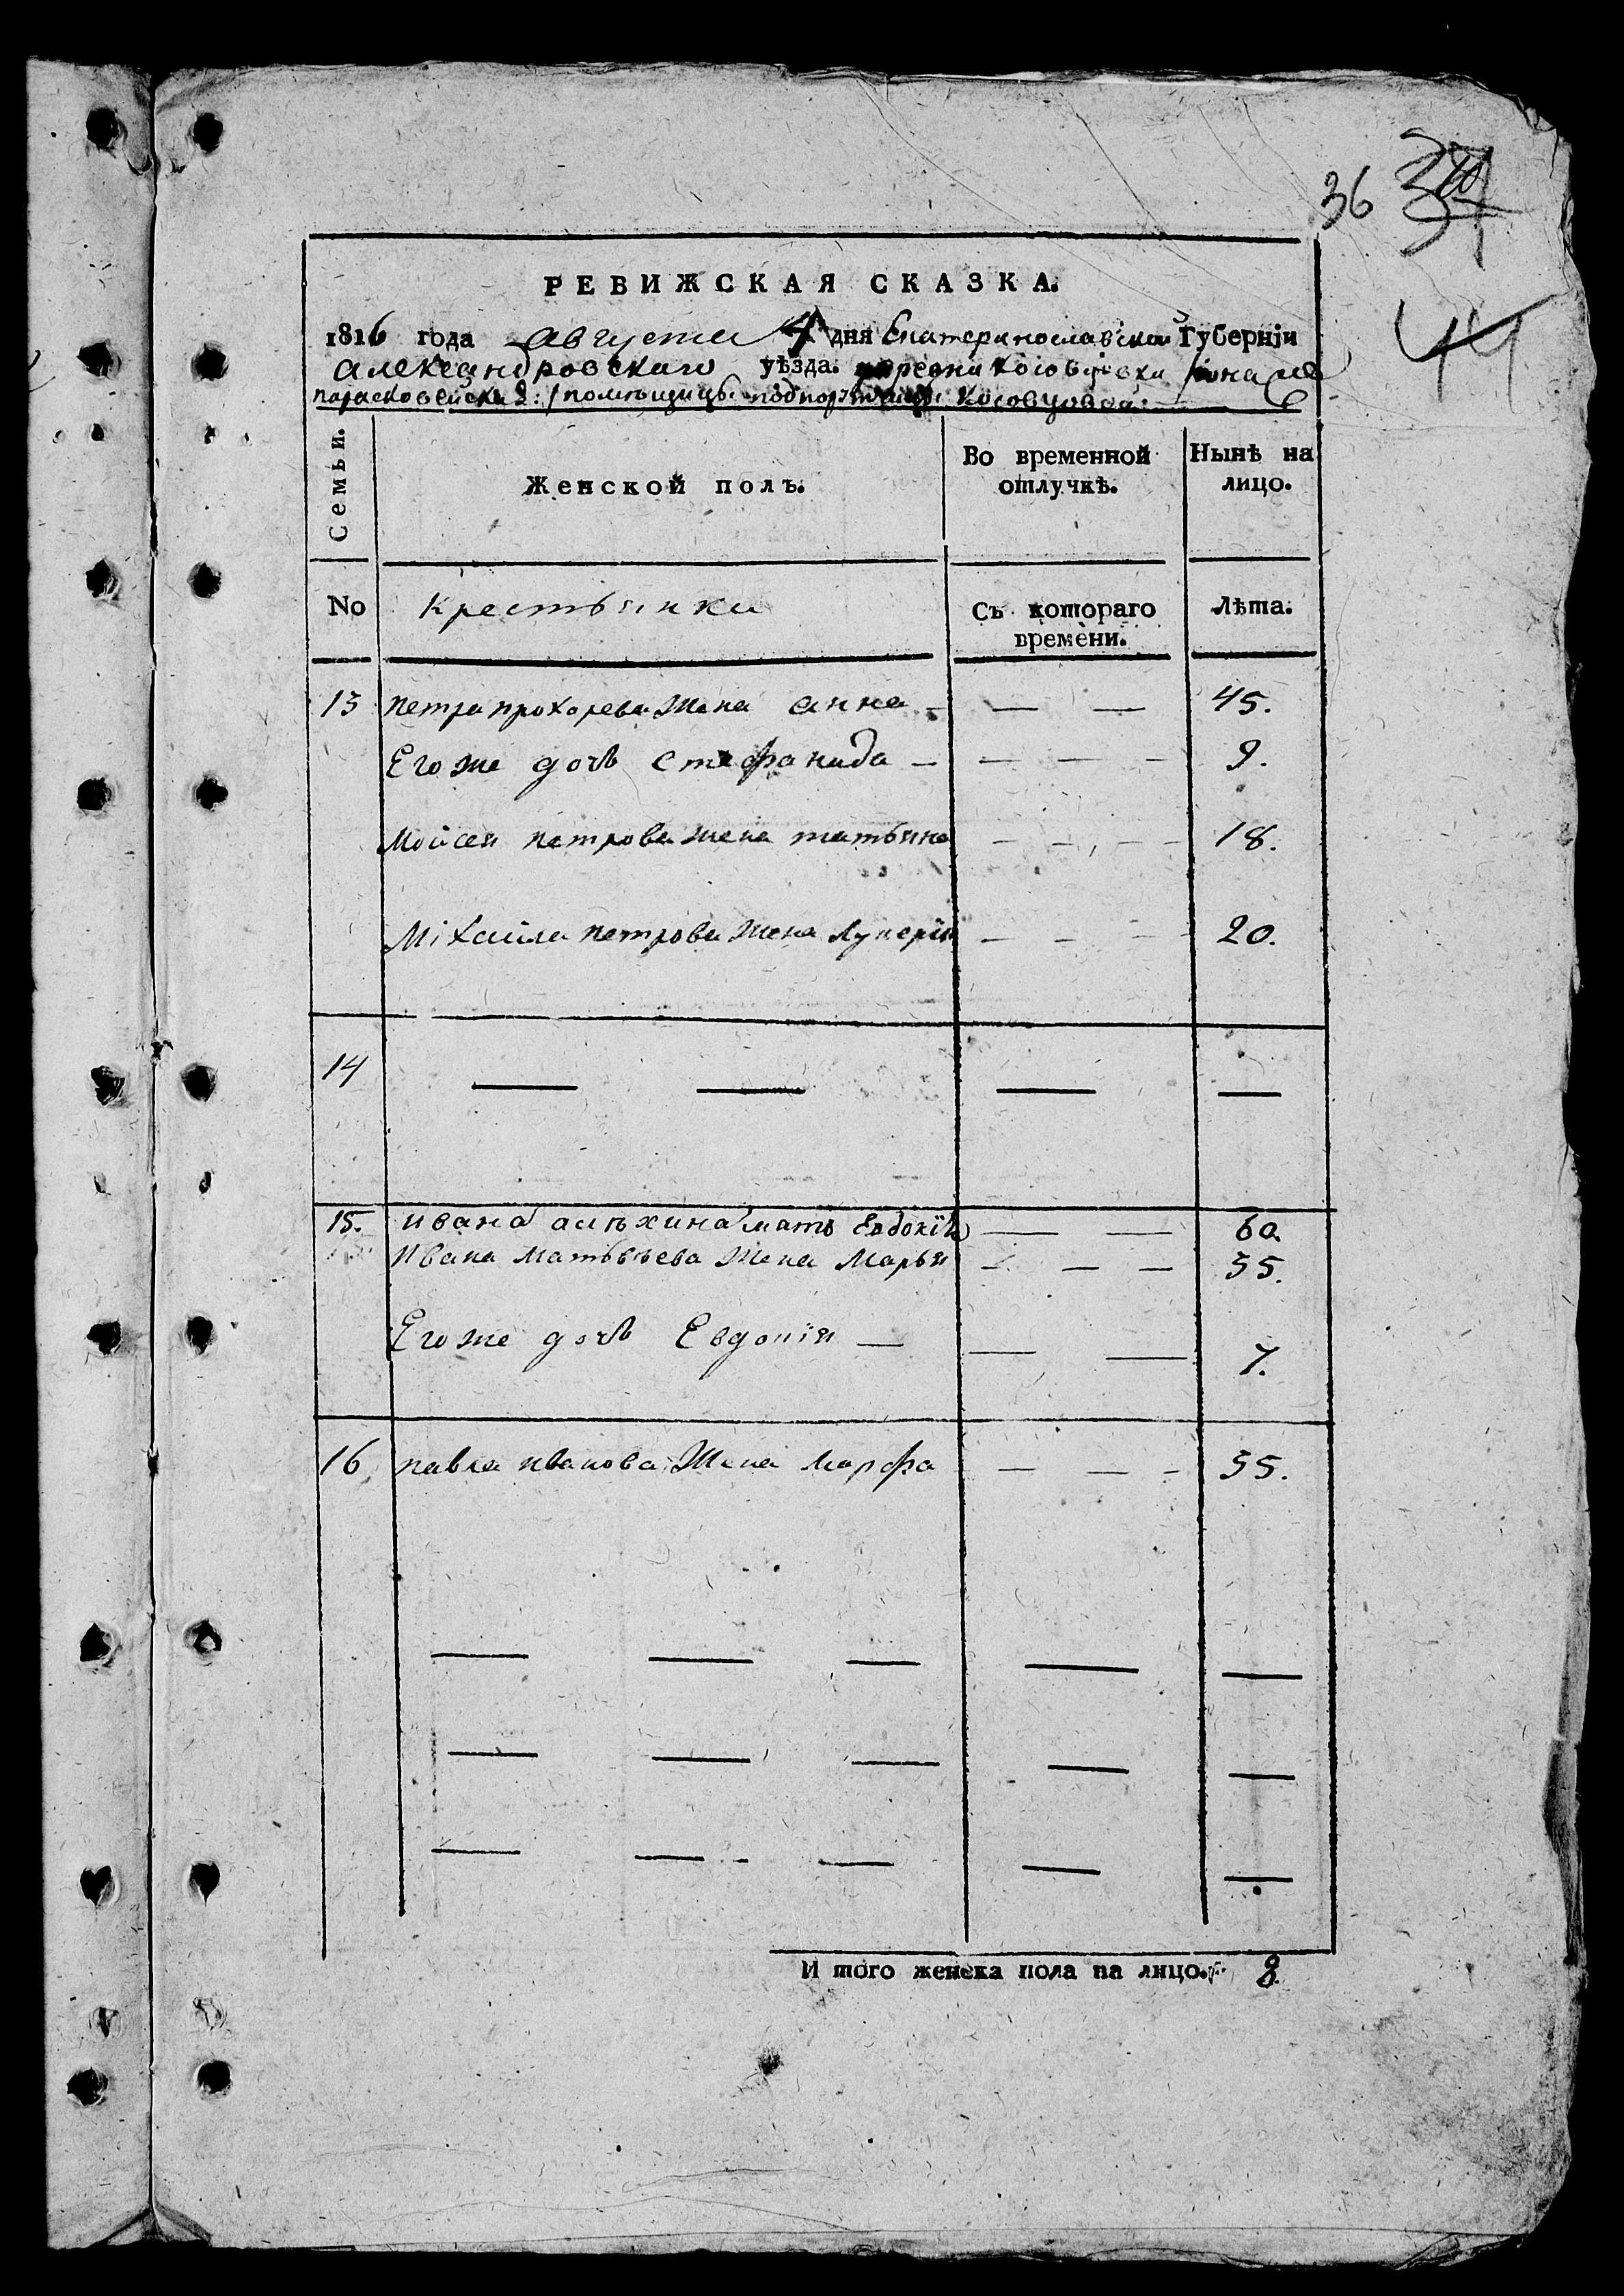 36
44
РЕВИЖСКАЯ СКАЗКА.
1816 года августа 4 дня Екатеринославской Губернїи
александровскаго уѣзда. деревни Косовцовки
парасковейска помѣщицы Косовцовой
Семьи. Женской полъ. Во временной отлучкѣ. Нынѣ на лицо.
No Крестьянки Съ котораго времени. Лѣта.
13 петра прохорева жена анна — — — 45.
Его же дочь стефанида — — — — 9.
Мойсея петрова жена татьяна — — — — 18.
Міхайла петрова жена Лукерїя — — — 20.
14 — — — —
15. ивана алѣхина мать Евдокїя — — 60
Ивана Матвѣева жена Марья — — — 35.
Его же дочь Евдокїя — — — 7.
16 павла иванова жена Марфа — — — 35.
— — — — —
— — — — —
— — — — —
И того женска пола на лицо. 8.